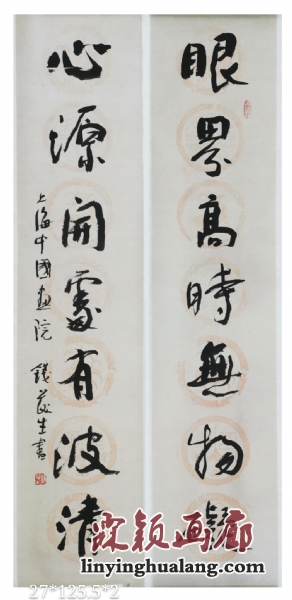 眼界高時無物礙
心源開處有波清
上海中國畫院 錢茂生書
琳颖画廊
linyinghualang.com
27*125.5*2